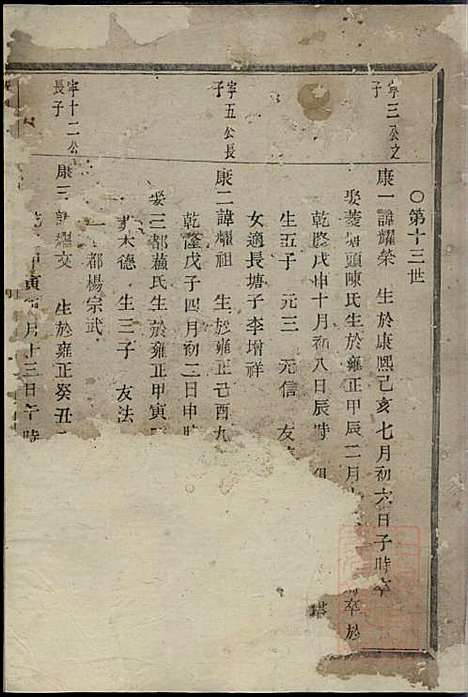 ○第十三世
字三公之子
康一諱耀榮 生於康熙己亥七月初六日子時卒
娶菱塘頭陳氏生於雍正甲辰二月 卒於
乾隆戊申十月初八日辰時
生五子 元三 元信 友
女適長塘子李增祥
字五公長子
康二諱耀祖 生於雍正己酉九
乾隆戊子四月初二日申時
娶三都蘇氏生於雍正甲寅
木德 生三子 友法
都楊宗武
字十二公長子
康三諱耀文 生於雍正癸丑
寅 月十三日午時